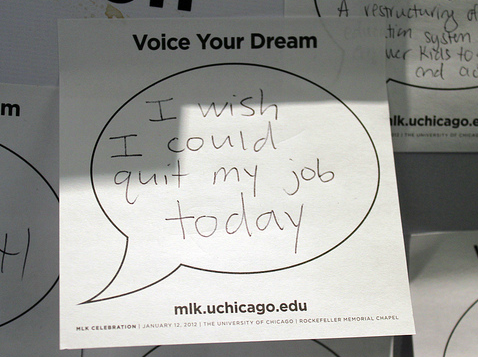 Voice Your Dream
I wish
I could
quit my job
today
mlk.uchicago.edu
MLK CELEBRATION | JANUARY 12, 2012 | THE UNIVERSITY OF CHICAGO | ROCKEFELLER MEMORIAL CHAPEL
A restructuring of
system
kids to
and
mlk.uchicago.e
THE UNIVERSITY OF CHICAGO
m